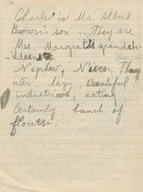 Charles is Mr. Albert
Brown's son. They are
Mrs. Margrets grandch-
ildern
Nephew, Neices, They
are lazy, beautiful
industrious, eating
Certainly bunch of
flowers.